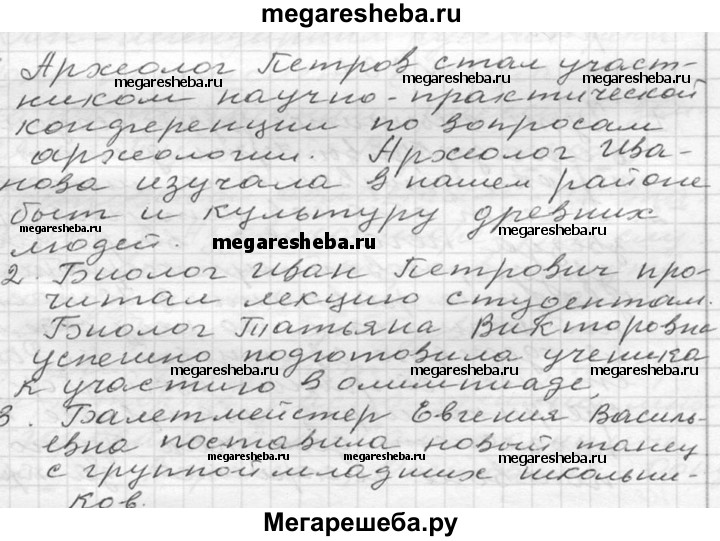 megaresheba.ru
Археолог Петров стал участ-
megaresheba.ru megaresheba.ru
ником научно-практической
конференции по вопросам
megaresheba.ru megaresheba.ru
археологии. Археолог Ива-
нова изучала в нашем районе
быт и культуру древних
megaresheba.ru megaresheba.ru
людей. megaresheba.ru
2. Биолог Иван Петрович про-
читал лекцию студентам.
Биолог Татьяна Викторовна
успешно подготовила ученика
megaresheba.ru megaresheba.ru
к участию в олимпиаде,
3. Балетмейстер Евгения Василь-
евна поставила новый танец
megaresheba.ru megaresheba.ru megaresheba.ru
с группой младших школьни-
ков.
Мегарешеба.ру